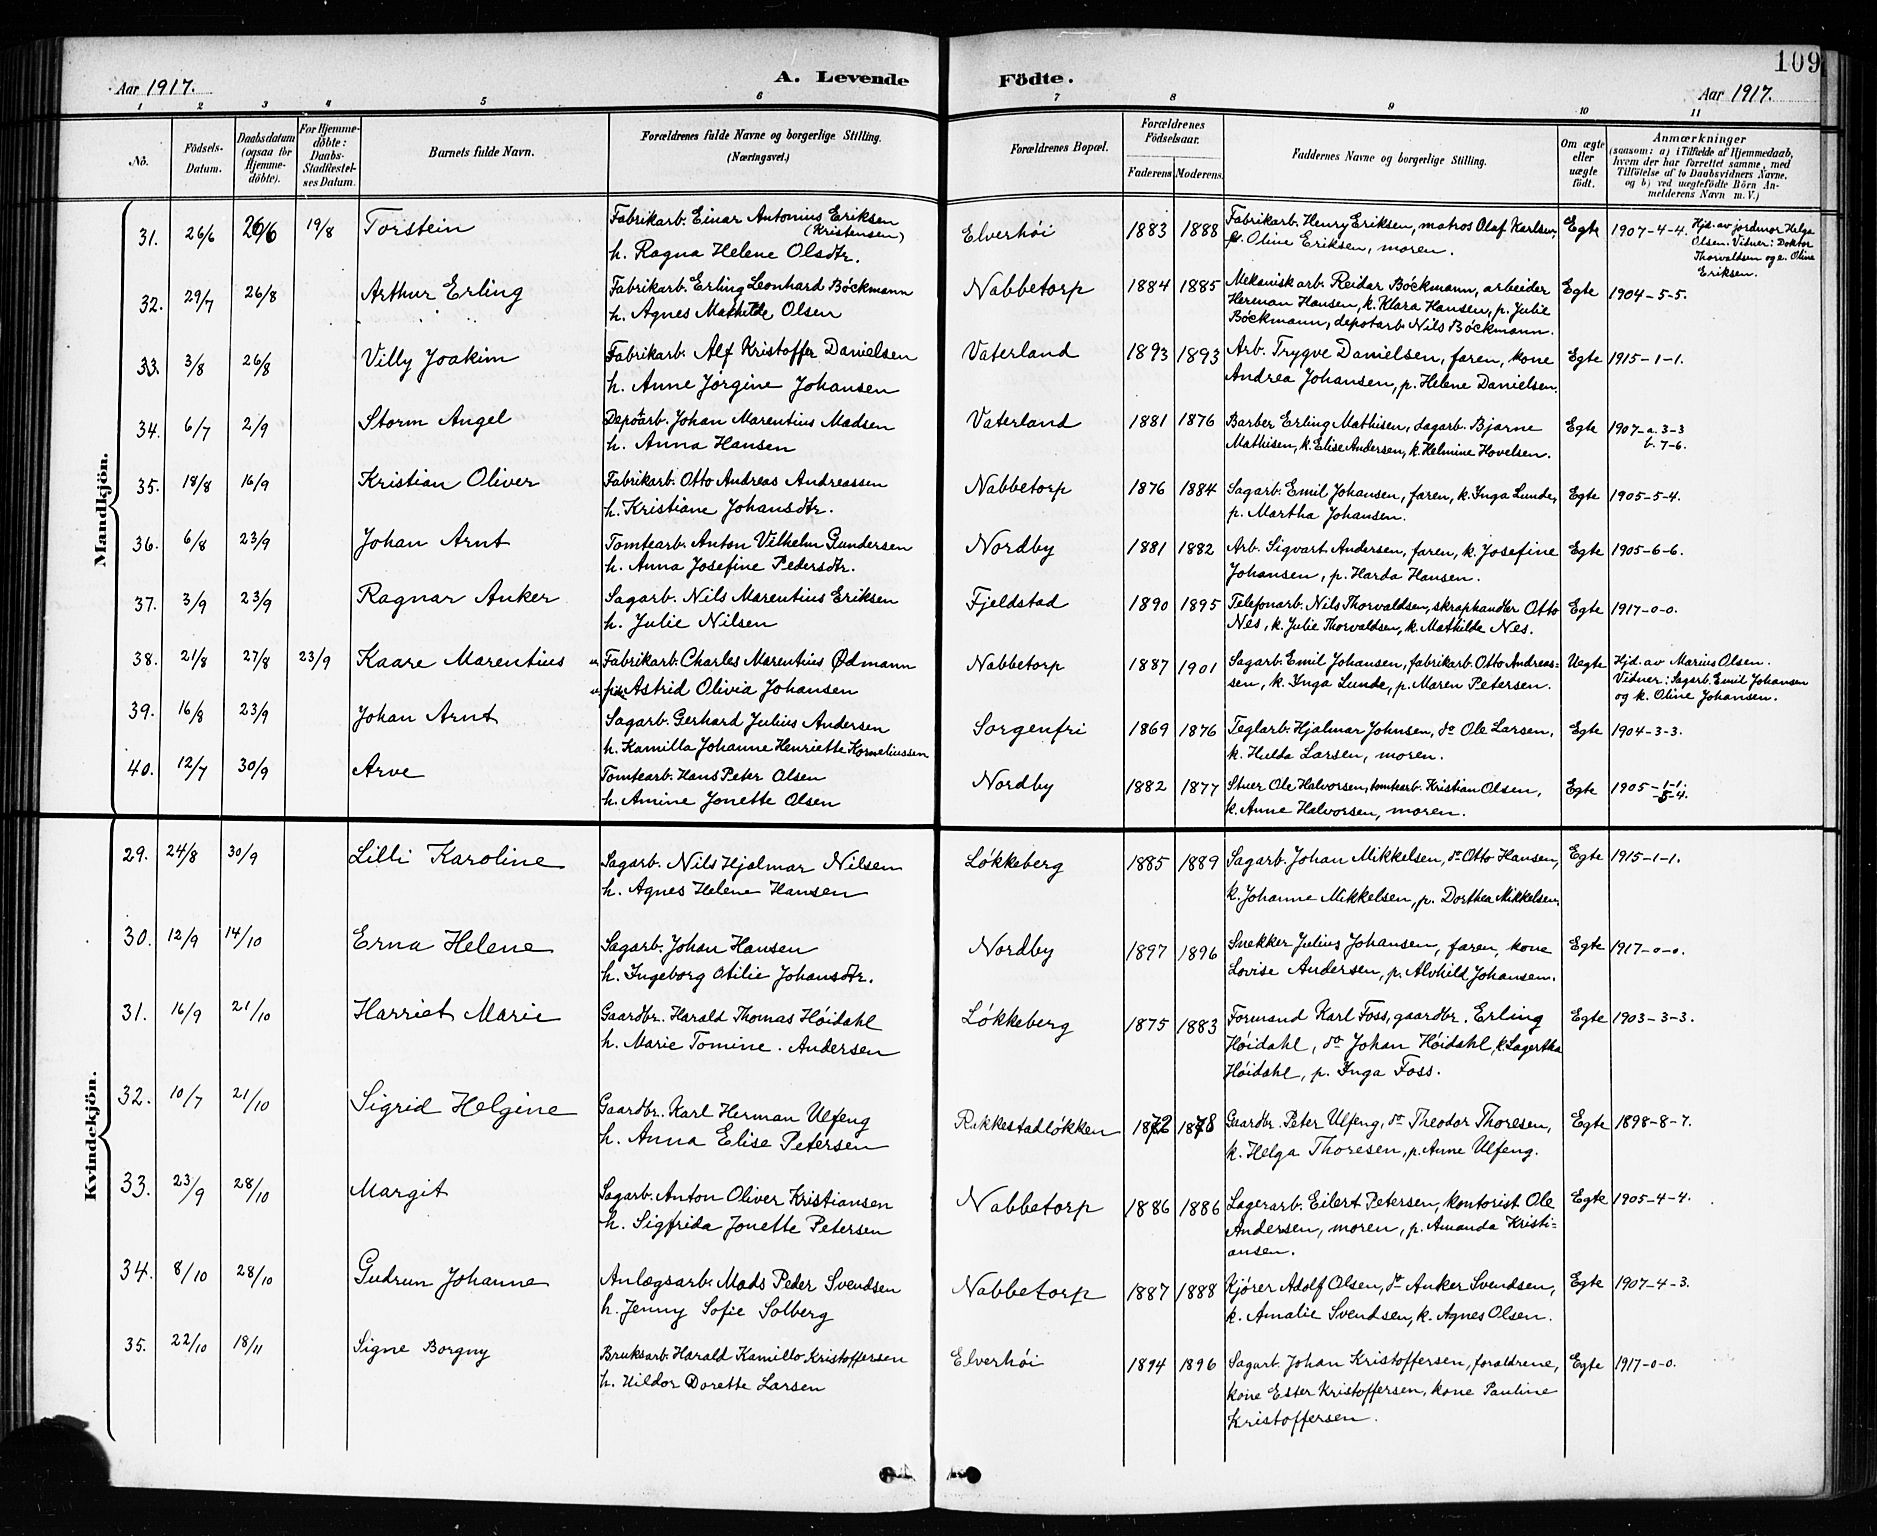 109
Aar 1917.
A. Levende Födte.
Aar 1917.
1 2 3 4 5 6 7 8 9 10 11
No.
Födsels-Datum.
Daabsdatum (ogsaa for Hjemme-döbte).
For Hjemme-döbte: Daabs-Stadfæstel-ses Datum.
Barnets fulde Navn.
Forældrenes fulde Navne og borgerlige Stilling.
(Næringsvei.)
Forældrenes Bopæl.
Forældrenes Födselsaar.
Faderens Moderens
Faddernes Navne og borgerlige Stilling.
Om ægte eller uægte födt.
Anmærkninger
(saasom: a) i Tilfælde af Hjemmedaab, hvem der har forrettet samme, med Tilföielse af to Daabsvidners Navne, og b) ved uægtefödte Börn An-melderens Navn m. V.)
Mandkjön.
31. 26/6 26/6 19/8 Torstein
Fabrikarb. Einar Antonius Eriksen
(Kristensen)
h. Ragna Helene Olsdtr.
Elverhöi 1883 1888
Fabrikarb. Henry Eriksen, matros Olaf Karlsen,
Oline Eriksen, moren.
Egte 1907-4-4.
Hjd. av jordmor Helga
Olsen. Vidner: Doktor
Thorvaldsen og e. Oline
Eriksen.
32. 29/7 26/8 Arthur Erling
Fabrikarb. Erling Leonhard Böckmann
h. Agnes Mathilde Olsen
Nabbetorp 1884 1885
Mekanisk arb. Reidar Böckmann, arbeider
Herman Hansen, k. Klara Hansen, p. Julie
Böckmann, depotarb. Nils Böckmann.
Egte 1904-5-5.
33. 3/8 26/8 Villy Joakim
Fabrikarb. Alf Kristoffer Danielsen
h. Anne Jörgine Johansen
Vaterland 1893 1893
Arb. Trygve Danielsen, faren, kone
Andrea Johansen, p. Helene Danielsen.
Egte 1915-1-1.
34. 6/7 2/9 Storm Angel
Depotarb. Johan Marentius Madsen
h. Anna Hansen
Vaterland 1881 1876
Barber Erling Mathisen, sagarb. Bjarne
Mathisen, k. Elise Andersen, k. Helmine Hovelsen.
Egte 1907-a. 3-3
b. 7-6.
35. 18/8 16/9 Kristian Oliver
Fabrikarb. Otto Andreas Andreassen
h. Kristiane Johansdtr.
Nabbetorp 1876 1884
Sagarb. Emil Johansen, faren, k. Inga Lunde,
p. Martha Johansen.
Egte 1905-5-4.
36. 6/8 23/9 Johan Arnt
Tomtearb. Anton Vilhelm Gundersen
h. Anna Josefine Pedersdtr.
Nordby 1881 1882
Arb. Sigvart Andersen, faren, k. Josefine
Johansen, p. Harda Hansen.
Egte 1905-6-6.
37. 3/9 23/9 Ragnar Anker
Sagarb. Nils Marentius Eriksen
h. Julie Nilsen
Fjeldstad 1890 1895
Telefonarb. Nils Thorvaldsen, skraphandler Otto
Nes, k. Julie Thorvaldsen, k. Mathilde Nes.
Egte 1917-0-0.
38. 21/8 27/8 23/9 Kaare Marentius
Fabrikarb. Charles Marentius Ødmann
Astrid Olivia Johansen
Nabbetorp 1887 1901
Sagarb. Emil Johansen, fabrikarb. Otto Andreas=
sen, k. Inga Lunde, p. Maren Petersen.
Uegte
Hjd. av Marius Olsen.
Vidner: Sagarb. Emil Johansen
og k. Oline Johansen.
39. 16/8 23/9 Johan Arnt
Sagarb. Gerhard Julius Andersen
h. Kamilla Johanne Henriette Korneliussen
Sorgenfri 1869 1876
Teglarb. Hjalmar Johnsen, do Ole Larsen,
k. Hulda Larsen, moren.
Egte 1904-3-3.
40. 12/7 30/9 Arve
Tomtearb. Hans Peter Olsen
h. Amine Jonette Olsen
Nordby 1882 1877
Stuer Ole Halvorsen, tomtearb. Kristian Olsen,
k. Anne Halvorsen, moren.
Egte 1905-1-1.
-5-4.
Kvindekjön.
29. 24/8 30/9 Lilli Karoline
Sagarb. Nils Hjalmar Nilsen
h. Agnes Helene Hansen
Lökkeberg 1885 1889
Sagarb. Johan Mikkelsen, do Otto Hansen,
k. Johanne Mikkelsen, p. Dorthea Mikkelsen.
Egte 1915-1-1.
30. 12/9 14/10 Erna Helene
Sagarb. Johan Hansen
h. Ingeborg Otilie Johansdtr.
Nordby 1897 1896
Snekker Julius Johansen, faren, kone
Lovise Andersen, p. Alvhild Johansen.
Egte 1917-0-0.
31. 16/9 21/10 Harriet Marie
Gaardbr. Harald Thomas Höidahl
h. Marie Tomine Andersen
Lökkeberg 1875 1883
Formand Karl Foss, gaardbr. Erling
Höidahl, do Johan Höidahl, k. Lagertha
Höidahl, p. Inga Foss.
Egte 1903-3-3.
32. 10/7 21/10 Sigrid Helgine
Gaardbr. Karl Herman Ulfeng
h. Anna Elise Petersen
Rikkestadlökken 1872 1878
Gaardbr. Peter Ulfeng, do Theodor Thoresen,
k. Helga Thoresen, p. Anne Ulfeng.
Egte 1898-8-7.
33. 23/9 28/10 Margit
Sagarb. Anton Oliver Kristiansen
h. Sigfrida Jonette Petersen
Nabbetorp 1886 1886
Lagerarb. Eilert Petersen, kontorist Ole
Andersen, moren, p. Amanda Kristi=
ansen.
Egte 1905-4-4.
34. 8/10 28/10 Gudrun Johanne
Anlægsarb. Mads Peder Svendsen
h. Jenny Sofie Solberg
Nabbetorp 1887 1888
Kjörer Adolf Olsen, do Anker Svendsen,
k. Amalie Svendsen, k. Agnes Olsen.
Egte 1907-4-3.
35. 22/10 18/11 Signe Borgny
Bruksarb. Harald Kamillo Kristoffersen
h. Hildor Dorette Larsen
Elverhöi 1894 1896
Sagarb. Johan Kristoffersen, foraldrene,
kone Ester Kristoffersen, kone Pauline
Kristoffersen.
Egte 1917-0-0.